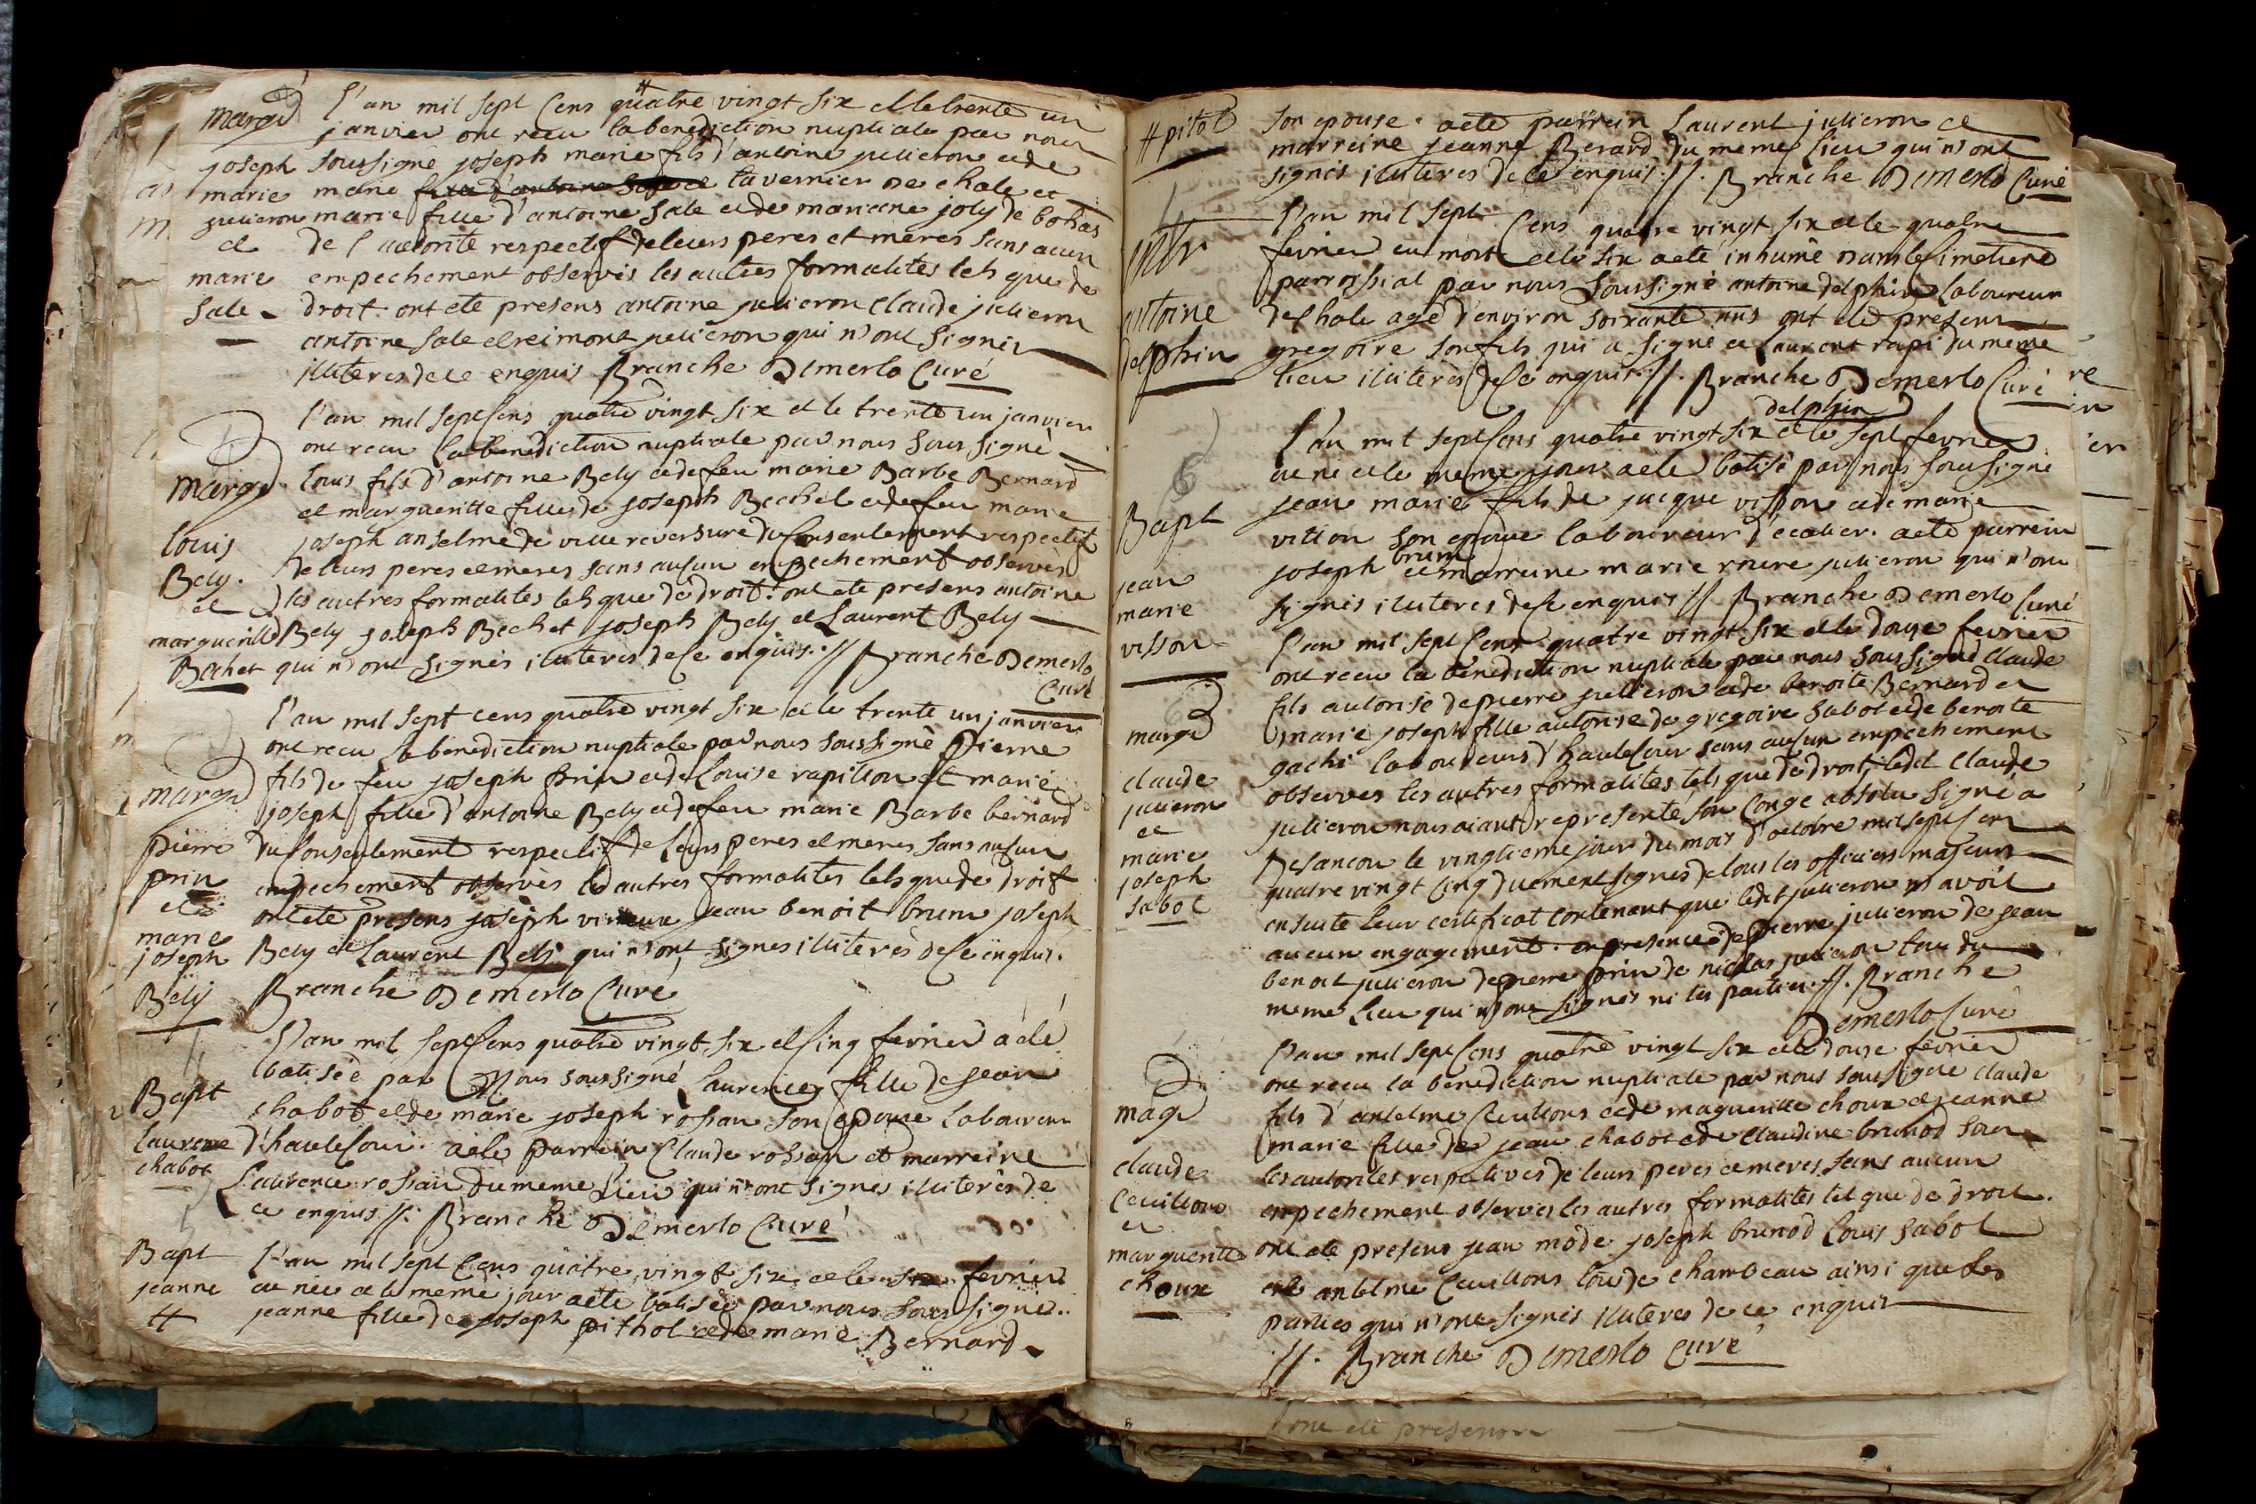 mariag
joseph
marie
julieron
et
marie
sale
L'an mil sept cens quatre vingt six et le trente un
janvier ont recu la benediction nuptiale par nous
soussigné joseph marie fils d'antoine julieron et de
marie tavernier de chale et
marie fille d'antoine sale et de mariane joly de bohas
de l'autorité respectif de leurs peres et meres sans aucun
empechement observés les autres formalites tels que de
droit. ont eté presens antoine julieron claude julieron
antoine sale et reimont julieron qui n'ont signés
illiteres de ce enquis Branche Demerlo Curé
mariag
Louis
Bely.
et
margueritte
Bechet
L'an mil sept cens quatre vingt six et le trente un janvier
ont recu la benediction nuptiale par nous sous signé
louis fils d'antoine Bely et de feu marie Barbe Bernard
et margueritte fille de joseph Bechet et de feu marie
joseph anselme de ville reversure du consentement respectif
de leurs peres et meres sans aucun empechement observés
les autres formalites tels que de droit. ont eté presens antoine
Bely joseph Bechet joseph Bely et Laurent Bely
qui n'ont signés illiteres de ce enquis. // Branche Demerlo
Curé
mariag
pierre
prin
et
marie
joseph
Bely
L'an mil sept cens quatre vingt six et le trente un janvier
ont recu la benediction nuptiale par nous soussigné Pierre
fils de feu joseph prin et de Louise rapillon et marie
joseph fille d'antoine Bely et de feu marie Barbe bernard
du consentement respectif de leurs peres et meres sans aucun
empechement observés les autres formalites tels que de droit
ont eté presens joseph jean benoit brun joseph
Bely et Laurent Bely qui n'ont signes illiterés de ce enquis.
Branche Demerlo Curé
Bapt
laurence
chabot
L'an mil sept cens quatre vingt six et cinq fevrier a eté
batisée par Nous soussigné Laurence fille de jean
chabot et de marie joseph rossan son epouse laboureur
d'hautecour. a eté parrein Claude rossan et marreine
Laurence rossan du meme Lieu qui n'ont signes illiterés de
ce enquis //. Branche Demerlo Curé
Bapt
jeanne
#
L'an mil sept Cens quatre vingt six et le six fevrier
et née et le meme jour a eté batisée par nous sous signé..
jeanne fille de joseph pithol et de marie Bernard
# pitol
son epouse. a eté parrein Laurent julieron et
marreine jeanne Berard du meme lieu qui n'ont
signés illiteres de ce enquis. //. Branche Demerlo Curé
antoine
delphin
L'an mil sept Cens quatre vingt six et le quatre
fevrier est mort et le six a eté inhumé dans le simetiere
parroissial par nous soussigné antoine delphin laboureur
de Chale agé d'environ soixante ans ont eté presens
gregoire son fils qui a signé et Laurent rapi du meme
lieu illiterés de ce enquis. //. Branche Demerlo Curé
delphin
6
Bapt
jean
marie
visson
L'an mil sept Cens quatre vingt six et le sept fevrier
est né et le meme jour a eté batisé par nous soussigné
jean marie fils de jacque visson et de marie
vitton son epouse laboureur d'ecolier. a eté parrein
joseph brun et marreine marie julieron qui n'ont
signés illiteres de ce enquis // Branche Demerlo Curé
mariag
claude
julieron
et
marie
joseph
sabot
L'an mil sept Cens quatre vingt six et le douze fevrier
ont recu la benediction nuptiale par nous sous signé Claude
fils autorisé de pierre julieron et de benoite Bernard et
marie joseph fille autorisée de gregoire sabot et de benoite
gaché laboureurs d'hautecour sans aucun empechement
observés les autres formalites tels que de droit, ledit Claude
julieron nous aiant representé son Congé absolu signé a
Besancon le vingtieme jour du mois d'octobre mil sept cens
quatre vingt cinq duement signés de tous les officiers majeurs
ensuite leur certificat contenant que ledit julieron n'avoit
aucun engagement. en presence de pierre julieron de jean
benoit julieron de pierre prin de nicolas julieron tous du
meme lieu qui n'ont signés ni les parties. //. Branche
Demerlo Curé
mag
claude
Ceuillons
et
margueritte
choux
L'an mil sept Cens quatre vingt six et le douze fevrier
ont recu la benediction nuptiale par nous soussigné claude
fils d'antelme Ceuillons et de magueritte choux et jeanne
marie fille de jean chabot et de claudine brunod sous
les autorites respectives de leurs peres et meres sans aucun
empechement observés les autres formalités tel que de droit.
ont eté presens jean mode joseph brunod Louis sabot
et antelme Ceuillons tous de chambeau ainsi que les
parties qui n'ont signés illiteres de ce enquis
//. Branche Demerlo Curé
ont eté presens